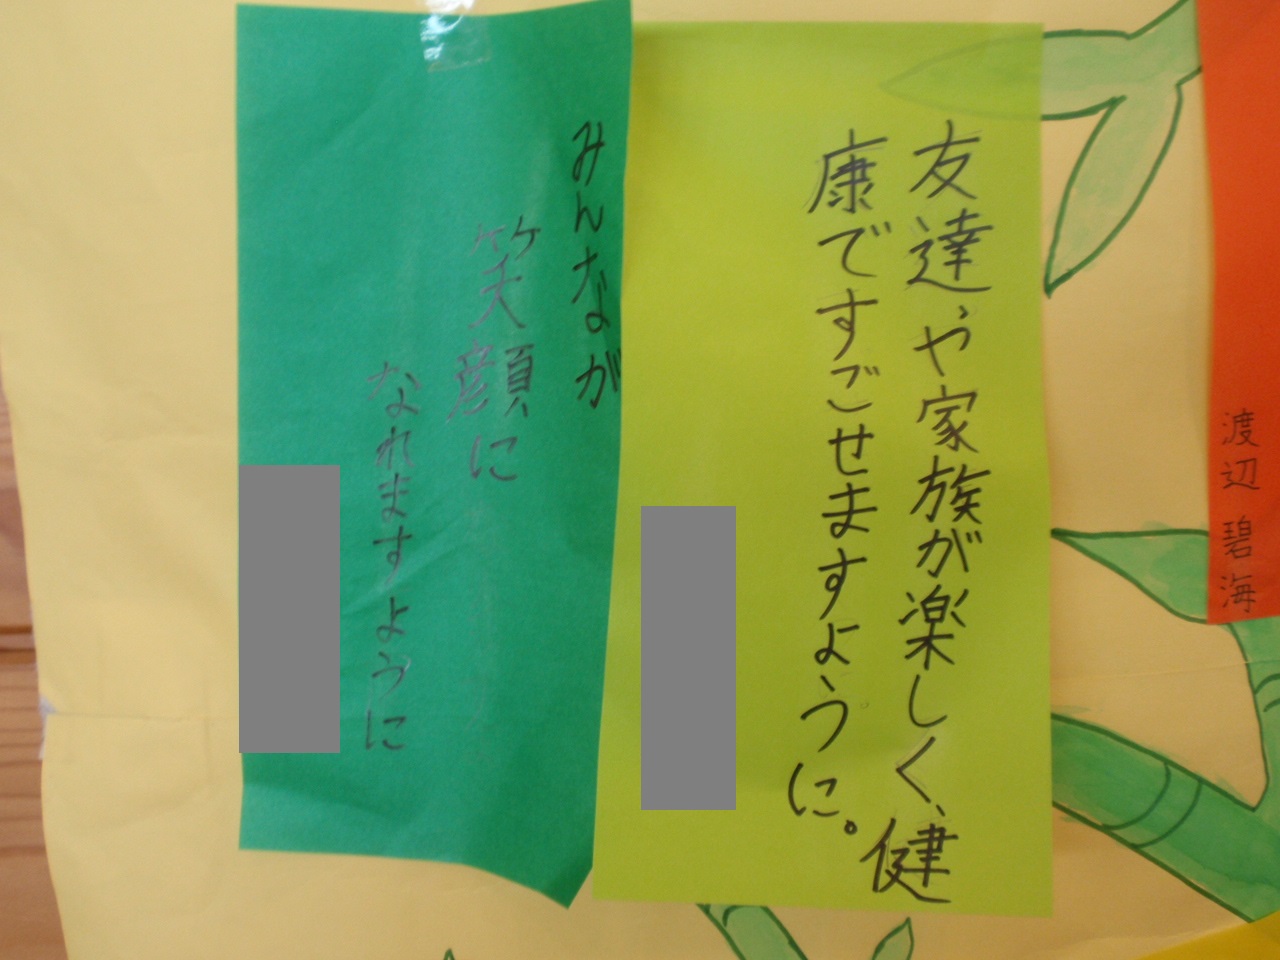 渡辺 碧海
友達や家族が楽しく、健
康ですごせますように。
みんなが
笑顔に
なれますように